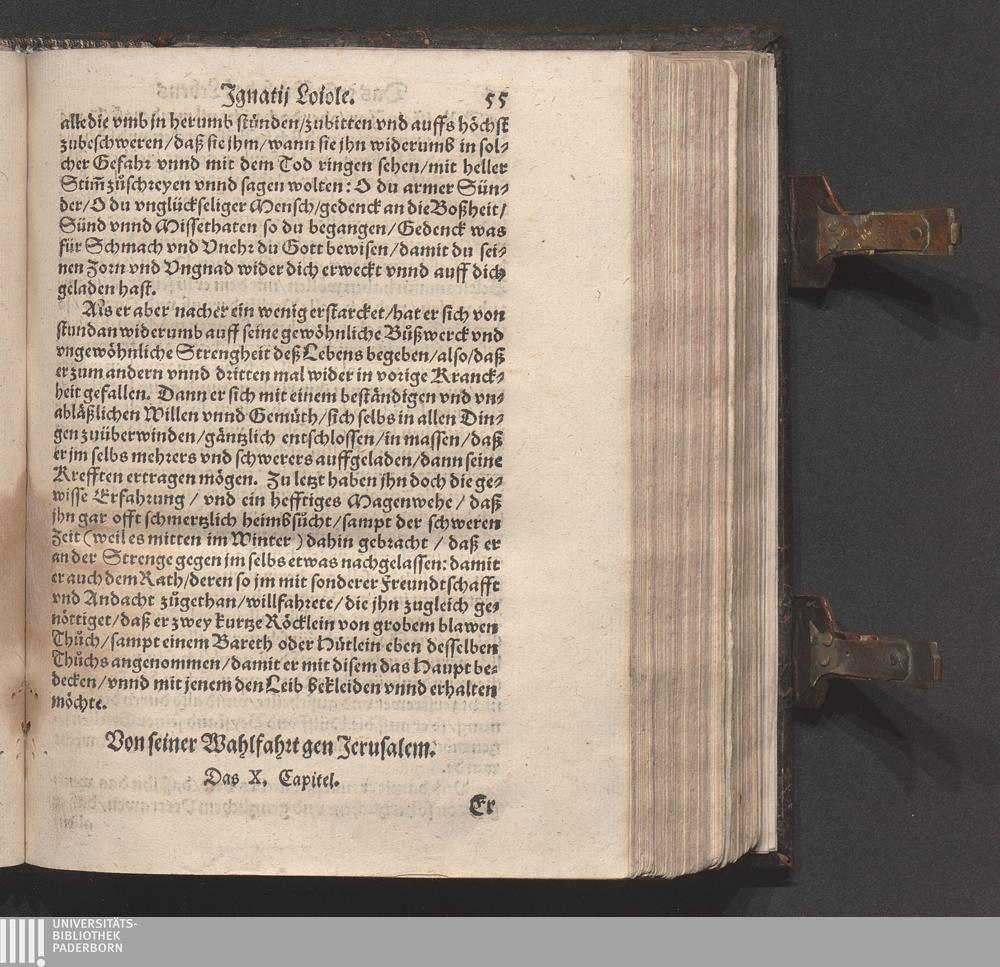 Ignatij Loiole. 55
alle die vmb jn herumb stůnden/zubitten vnd auffs höchst
zubeschweren/daß sie jhm/wann sie jhn widerumb in sol-
cher Gefahr vnnd mit dem Tod ringen sehen/mit heller
Stim̃ zůschreyen vnnd sagen wolten: O du armer Sün-
der/O du vnglückseliger Mensch/gedenck an die Boßheit/
Sünd vnnd Missethaten so du begangen/Gedenck was
für Schmach vnd Vnehr du Gott bewisen/damit du sei-
nen Zorn vnd Vngnad wider dich erweckt vnnd auff dich
geladen hast.
Als er aber nacher ein wenig erstarcket/hat er sich von
stundan widerumb auff seine gewöhnliche Bůßwerck vnd
vngewöhnliche Strengheit deß Lebens begeben/also/daß
er zum andern vnnd dritten mal wider in vorige Kranck-
heit gefallen. Dann er sich mit einem beständigen vnd vn-
abläßlichen Willen vnnd Gemüth/sich selbs in allen Din-
gen zuüberwinden/gäntzlich entschlossen/in massen/daß
er jm selbs mehrers vnd schwerers auffgeladen/dann seine
Krefften ertragen mögen. Zu letzt haben jhn doch die ge-
wisse Erfahrung / vnd ein hefftiges Magenwehe / daß
jhn gar offt schmertzlich heimbsůcht/sampt der schweren
Zeit (weil es mitten im Winter) dahin gebracht / daß er
an der Strenge gegen jm selbs etwas nachgelassen: damit
er auch dem Rath/deren so jm mit sonderer Freundtschafft
vnd Andacht zůgethan/willfahrete/die jhn zugleich ge-
nöttiget/daß er zwey kurtze Röcklein von grobem blawen
Thůch/sampt einem Bareth oder Hütlein eben desselben
Thůchs angenommen/damit er mit disem das Haupt be-
decken/vnnd mit jenem den Leib bekleiden vnnd erhalten
möchte.
Von seiner Wahlfahrt gen Jerusalem.
Das X. Capitel.
Er
UNIVERSITÄTS-
BIBLIOTHEK
PADERBORN